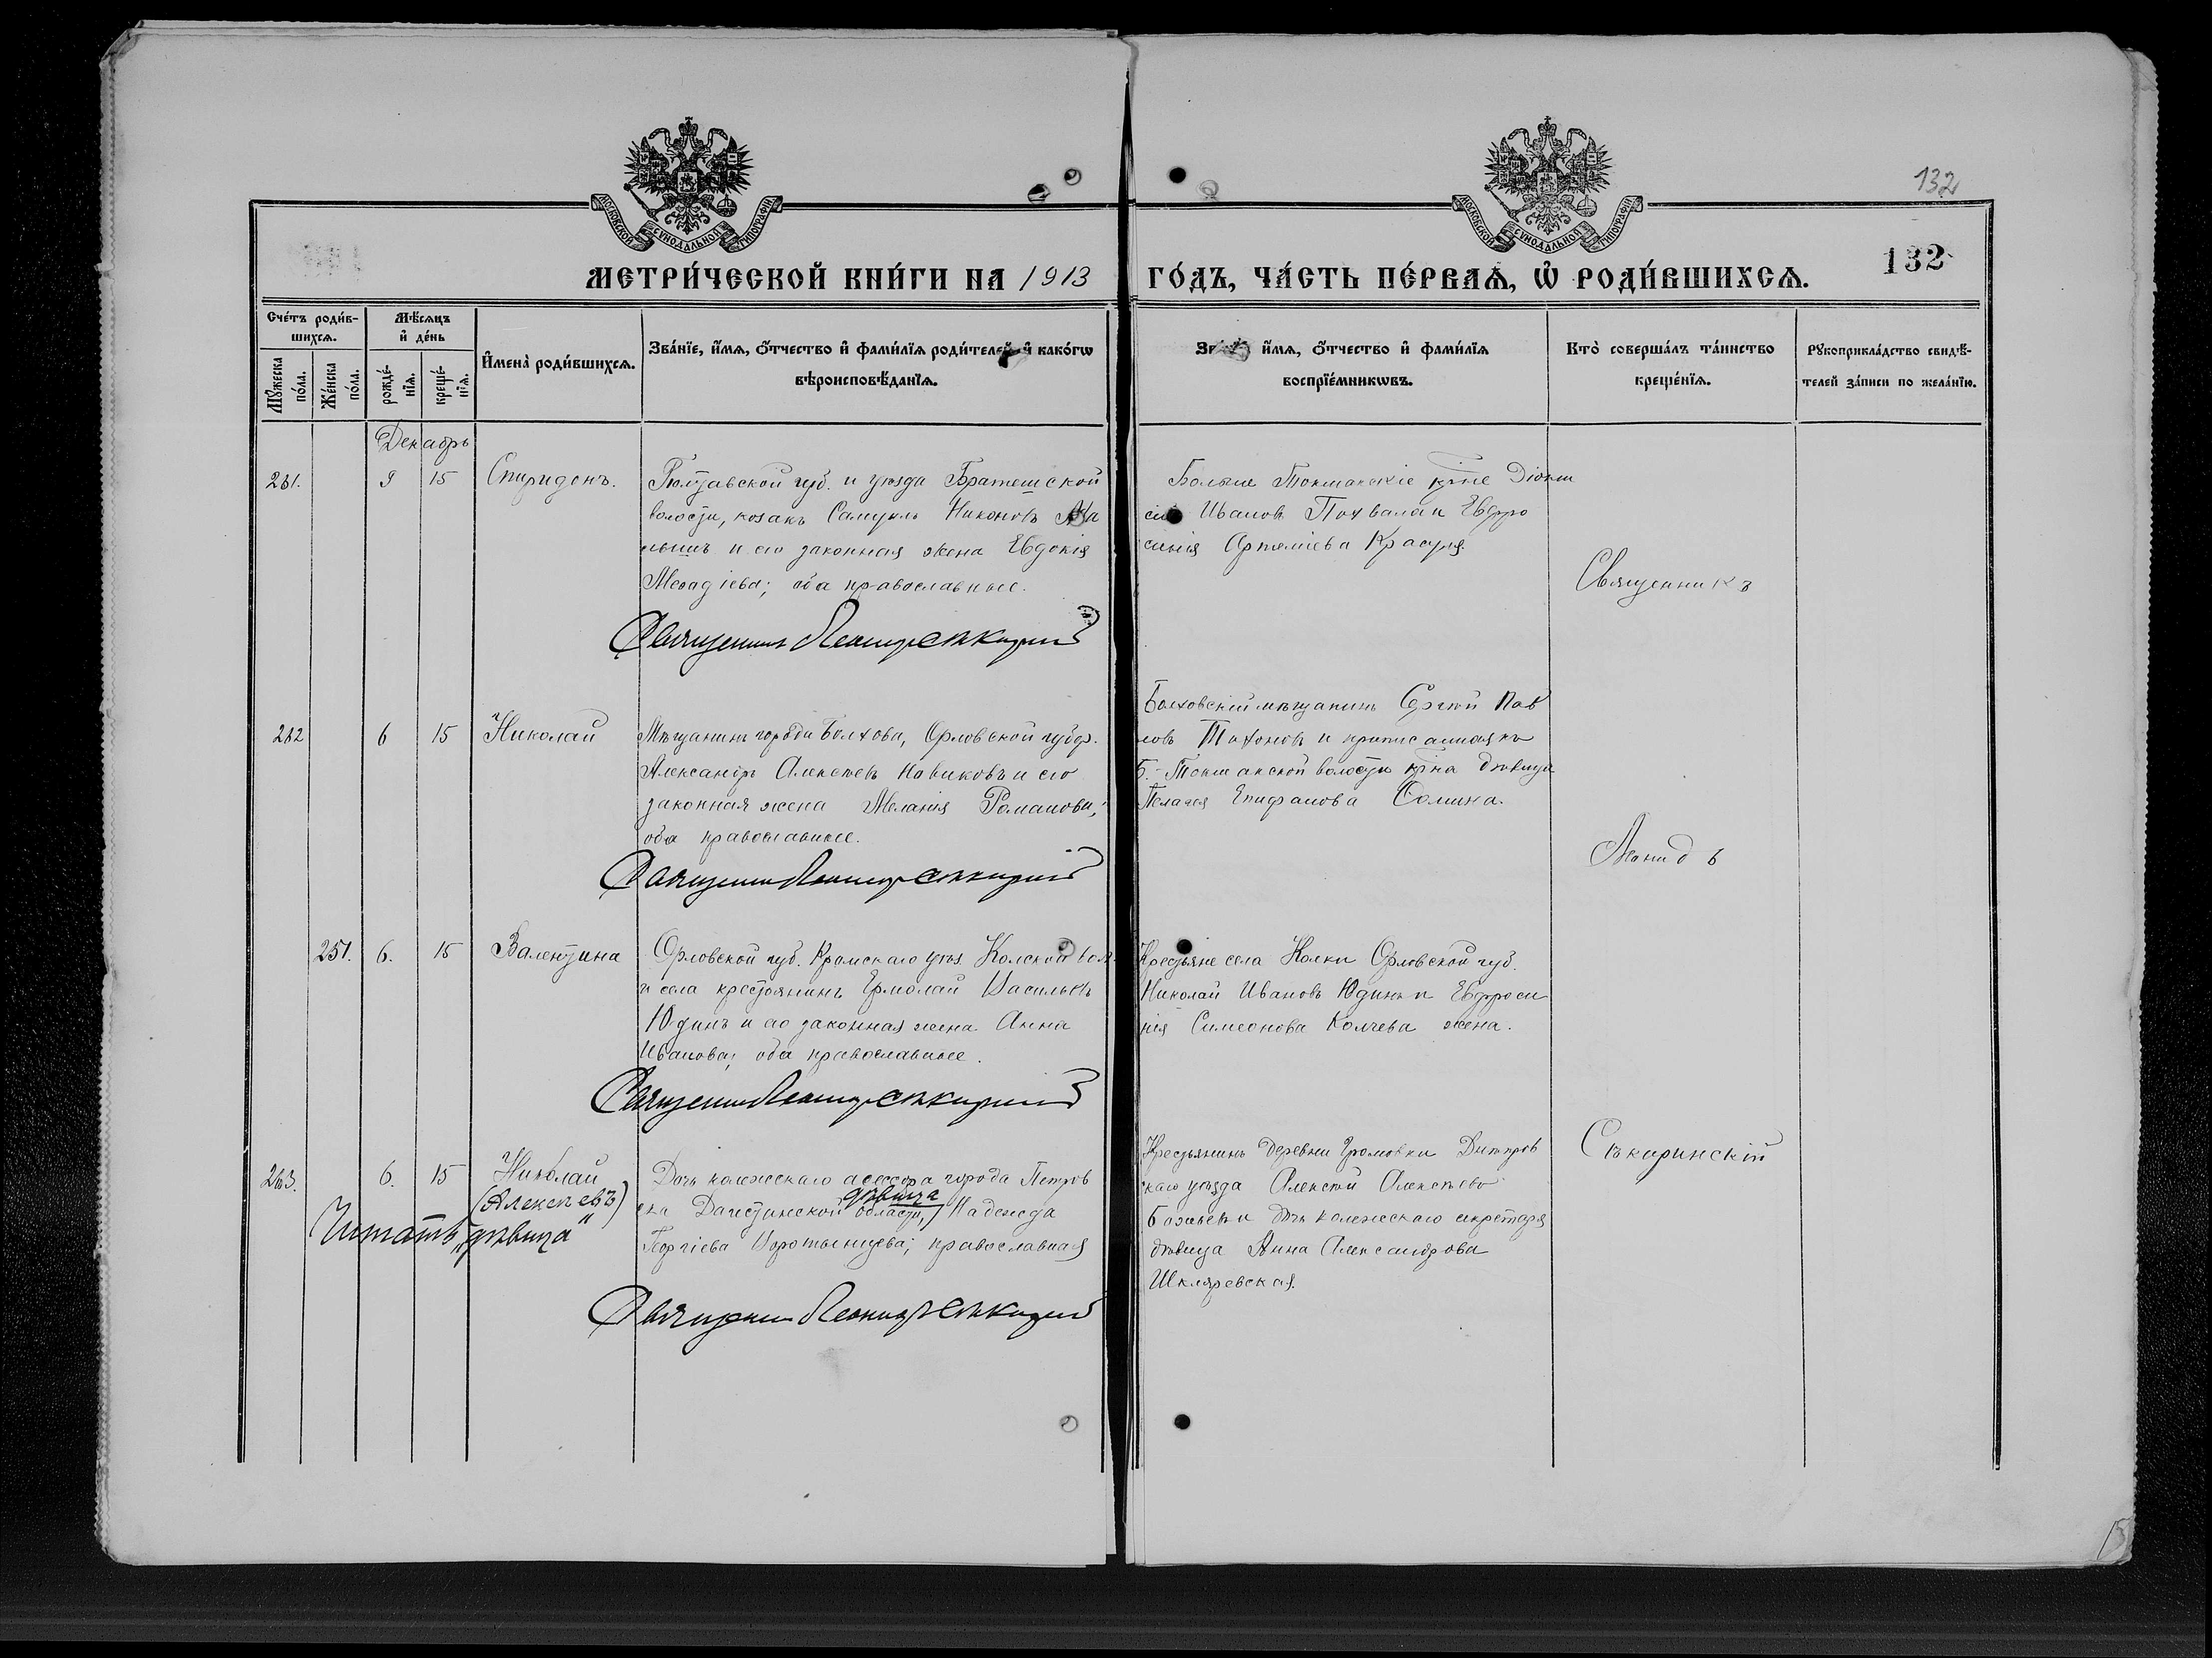 132
МОСКОВСКОЙ СѴНОДАЛЬНОЙ ТИПОГРАФІИ
МОСКОВСКОЙ СѴНОДАЛЬНОЙ ТИПОГРАФІИ
132
МЕТРИ́ЧЕСКОЙ КНИ́ГИ НА 1913 ГО́ДЪ, ЧА́СТЬ ПЕ́РВАѦ, Ѡ҆ РОДИ́ВШИХСѦ.
Сче́тъ роди́в-
шихсѧ.
Мꙋ́жеска по́ла.
Же́нска по́ла.
Мѣ́сѧцъ
и҆ де́нь
рожде́-
нїѧ.
креще́-
нїѧ.
И҆мена̀ роди́вшихсѧ.
Зва́нїе, и҆́мѧ, ѻ҆́тчество и҆ фами́лїѧ роди́телей, и҆ како́гѡ
вѣроисповѣ́данїѧ.
и҆́мѧ, ѻ҆́тчество и҆ фами́лїѧ
воспрїе́мникѡвъ.
Кто̀ соверша́лъ та́инство
креще́нїѧ.
Рꙋкоприкла́дство свидѣ́-
телей за́писи по жела́нїю.
Декабрь
261. 9 15 Спиридонъ.
Полтавской губ. и уѣзда Братешской
волости, козакъ Самуилъ Никоновъ
и его законная жена Евдокія
Меѳодіева; оба православные.
Священникъ Леонидъ Сѣкиринскій
Больше Токмакскіе кр-не Діони
сій Ивановъ Похвала и Евфро
синія Артеміева
Священникъ
262 6 15 Николай
Мѣщанинъ города Болхова, Орловской губ.
Александръ Алексѣевъ Новиковъ и его
законная жена Меланія Романова,
оба православные.
Священникъ Леонидъ Сѣкиринскій
Болховскій мѣщанинъ Сергѣй Пав
ловъ Тихоновъ и приписанная къ
Б.-Токмакской волости кр-на дѣвица
Пелагея Епифанова Сомина.
Леонидъ
251. 6. 15 Валентина
Орловской губ. Кромскаго уѣз. Колской вол.
и села крестьянинъ Ермолай Васильевъ
Юдинъ и его законная жена Анна
Иванова, оба православные.
Священникъ Леонидъ Сѣкиринскій
Крестьяне села Колки Орловской губ.
Николай Ивановъ Юдинъ и Евфроси
нія Симеонова Колчева жена.
263. 6. 15 Николай
(Алексѣевъ)
Читать „дѣвица“
Дочь колежскаго асессора города Петров
ска Дагестанской области, дѣвица Надежда
Георгіева Воротынцева; православная
Священникъ Леонидъ Сѣкиринскій
Крестьянинъ деревни Громовки Днѣпров
скаго уѣзда Алексѣй Алексѣевъ
и дочь колежскаго секретаря
дѣвица Анна Александрова
Шкляревская.
Сѣкиринскій